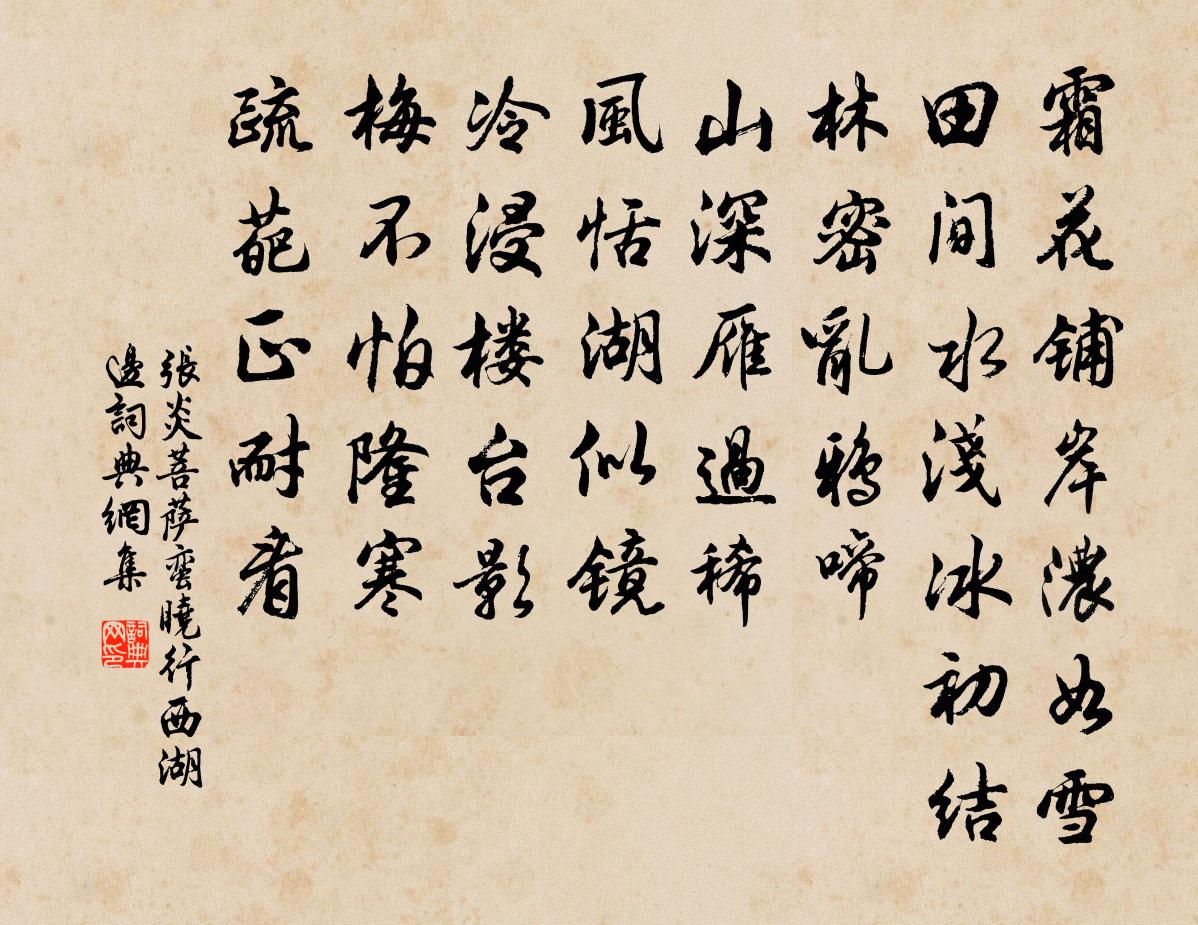 霜花铺岸濃如雪
田间水淺冰初结
林密亂鸦啼
山深雁過稀
風恬湖似镜
冷浸楼台影
梅不怕隆寒
疏葩正耐看
張炎菩萨蛮曉行西湖
邊詞典網集
詞典网印